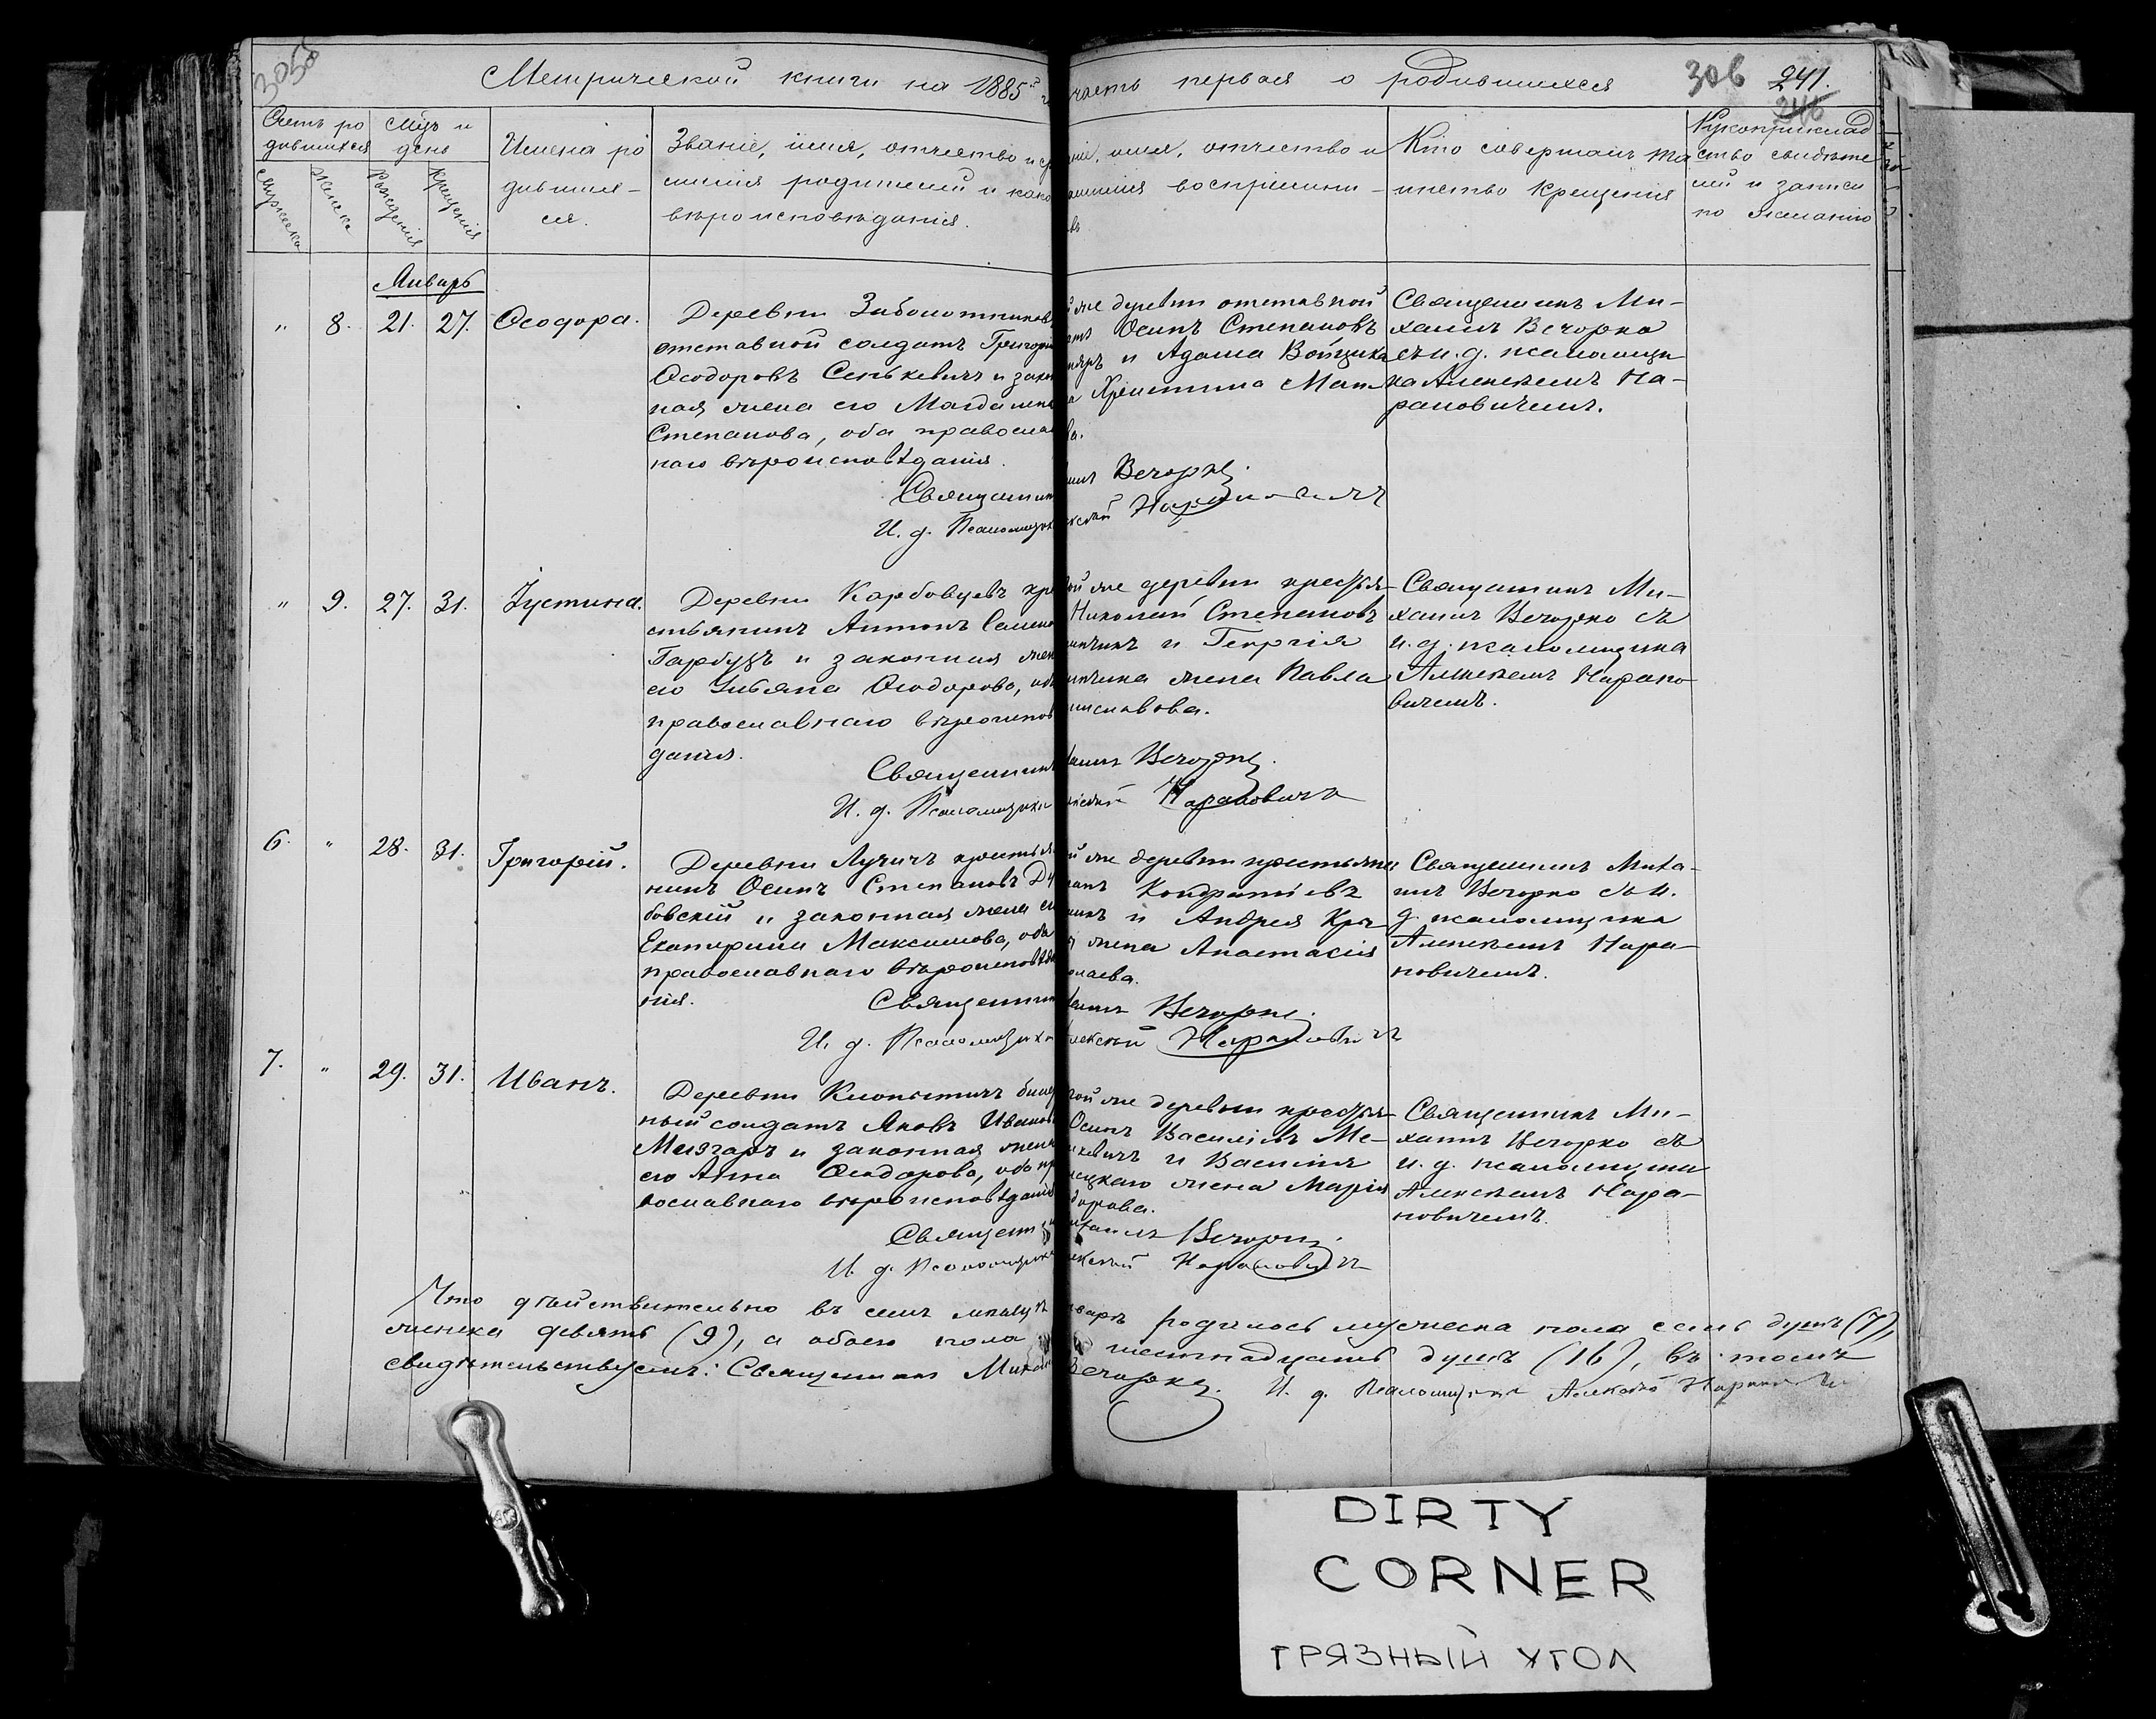 305
Метрической книги на 1885й
часть первая о родившихся
306 241.
246
Счетъ ро
дившихся
Мужеска
Женска
Мѣц и
день
Рожденія
Крещенія
Имена ро
дивших-
ся.
Званіе, имя, отчество и
милія родителей и како
вѣроисповѣданія.
имя, отчество и
воспріемни-
Кто совершалъ та
инство крещенія
Рукоприклад
ство свидѣте
лей и записи
по желанію
Январь
" 8. 21. 27. Ѳеодора.
Деревни
отставной солдатъ Григорій
Ѳеодоровъ Сенькевичъ и закон
ная жена его Магдалена
Степанова, оба православ
наго вѣроисповѣданія.
Священник
И. д. Псаломщик
же деревни отставной
Осипъ Степановъ
и Адама Войцика
Христина Мат
ва.
Вечорко.
Нарановичъ
Священникъ Ми-
хаилъ Вечорко
съ и. д. псаломщи
ка Алексѣемъ На-
рановичемъ.
" 9. 27. 31. Іустина.
Деревни Карбовцевъ кре
стьянинъ Антонъ
Гарбузъ и законная жен
его Ульяна Ѳеодорова, оба
православнаго вѣроисповѣ
данія.
Священникъ
И. д. Псаломщика
же деревни крестья-
Николай Степановъ
и Георгія
жена Павла
ова.
Вечорко.
Нарановичъ
Священникъ Ми-
хаилъ Вечорко съ
и. д. псаломщика
Алексѣемъ Нарано
вичемъ.
6. " 28. 31. Григорій.
Деревни Лучичъ крестья
нинъ Осипъ Степановъ Ду
бовскій и законная жена ег
Екатерина Максимова, оба
православнаго вѣроисповѣда
нія.
Священник
И. д. Псаломщика
же деревни крестьяни
Кондратіевъ
и Андрея Кра
жена Анастасія
олаева.
Вечорко.
Нарановичъ
Священникъ Миха-
илъ Вечорко съ и.
д. псаломщика
Алексѣемъ Нара-
новичемъ.
7. " 29. 31. Иванъ.
Деревни билет
ный солдатъ Яковъ Иванов
Мизгаръ и законная жена
его Анна Ѳеодорова, оба пр
вославнаго вѣроисповѣданія
Священ
И. д. Псаломщика
же деревни крестья-
Осипъ Василіевъ Ме-
кевичъ и Василія
жена Марія
дорова.
Вечорко.
Нарановичъ
Священникъ Ми-
хаилъ Вечорко съ
и. д. псаломщика
Алексѣемъ Нара-
новичемъ.
Что дѣйствительно въ семъ мѣсяцѣ январѣ родилось мужеска пола семь душъ (7),
женска девять (9), а обоего пола шестнадцать душъ (16), въ томъ
свидѣтельствуемъ: Священникъ Михаилъ Вечорко. И. д. Псаломщика Алексѣй Нарановичъ
DIRTY
CORNER
ГРЯЗНЫЙ УГОЛ